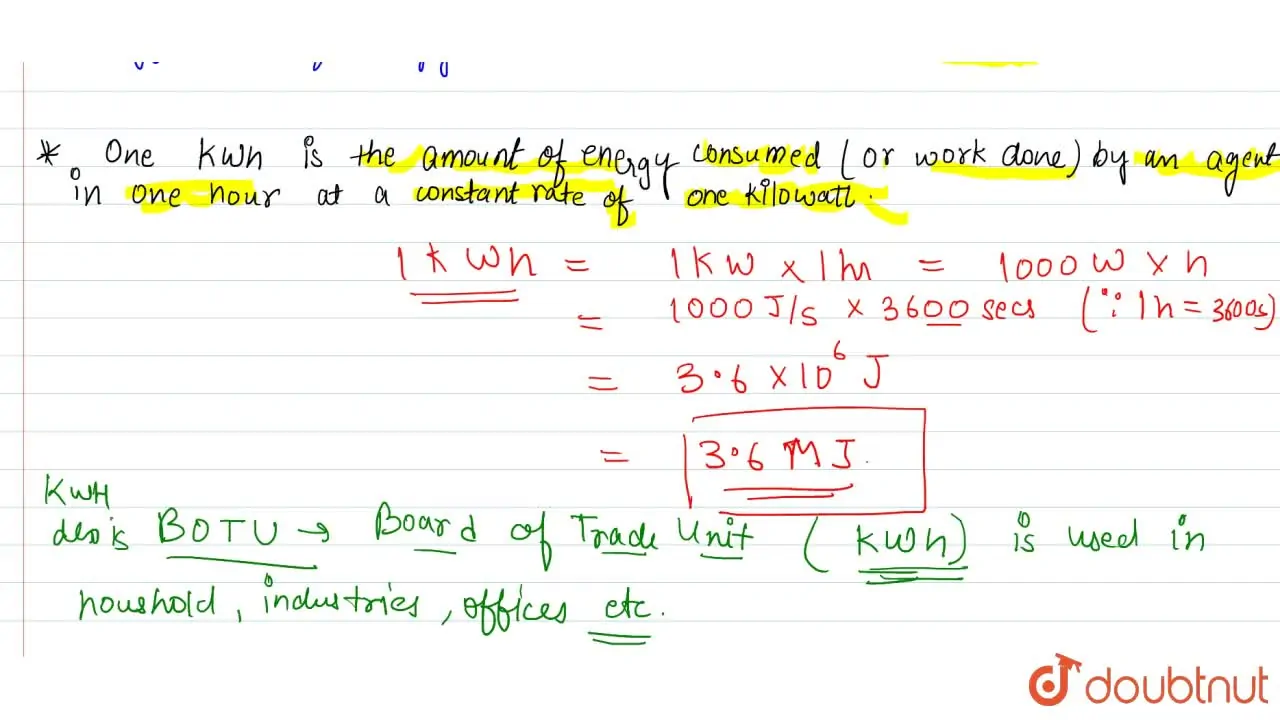 * One kwh is the amount of energy consumed (or work done) by an agent
in one hour at a constant rate of one kilowatt.
1 k Wh = 1 KW × 1 hr = 1000 W × h
= 1000 J/s × 3600 secs (∵ 1h = 3600s)
= 3.6 × 10⁶ J
= 3.6 MJ.
KWH
is BOTU → Board of Trade Unit (kWh) is used in
houshold, industries, offices etc.
doubtnut